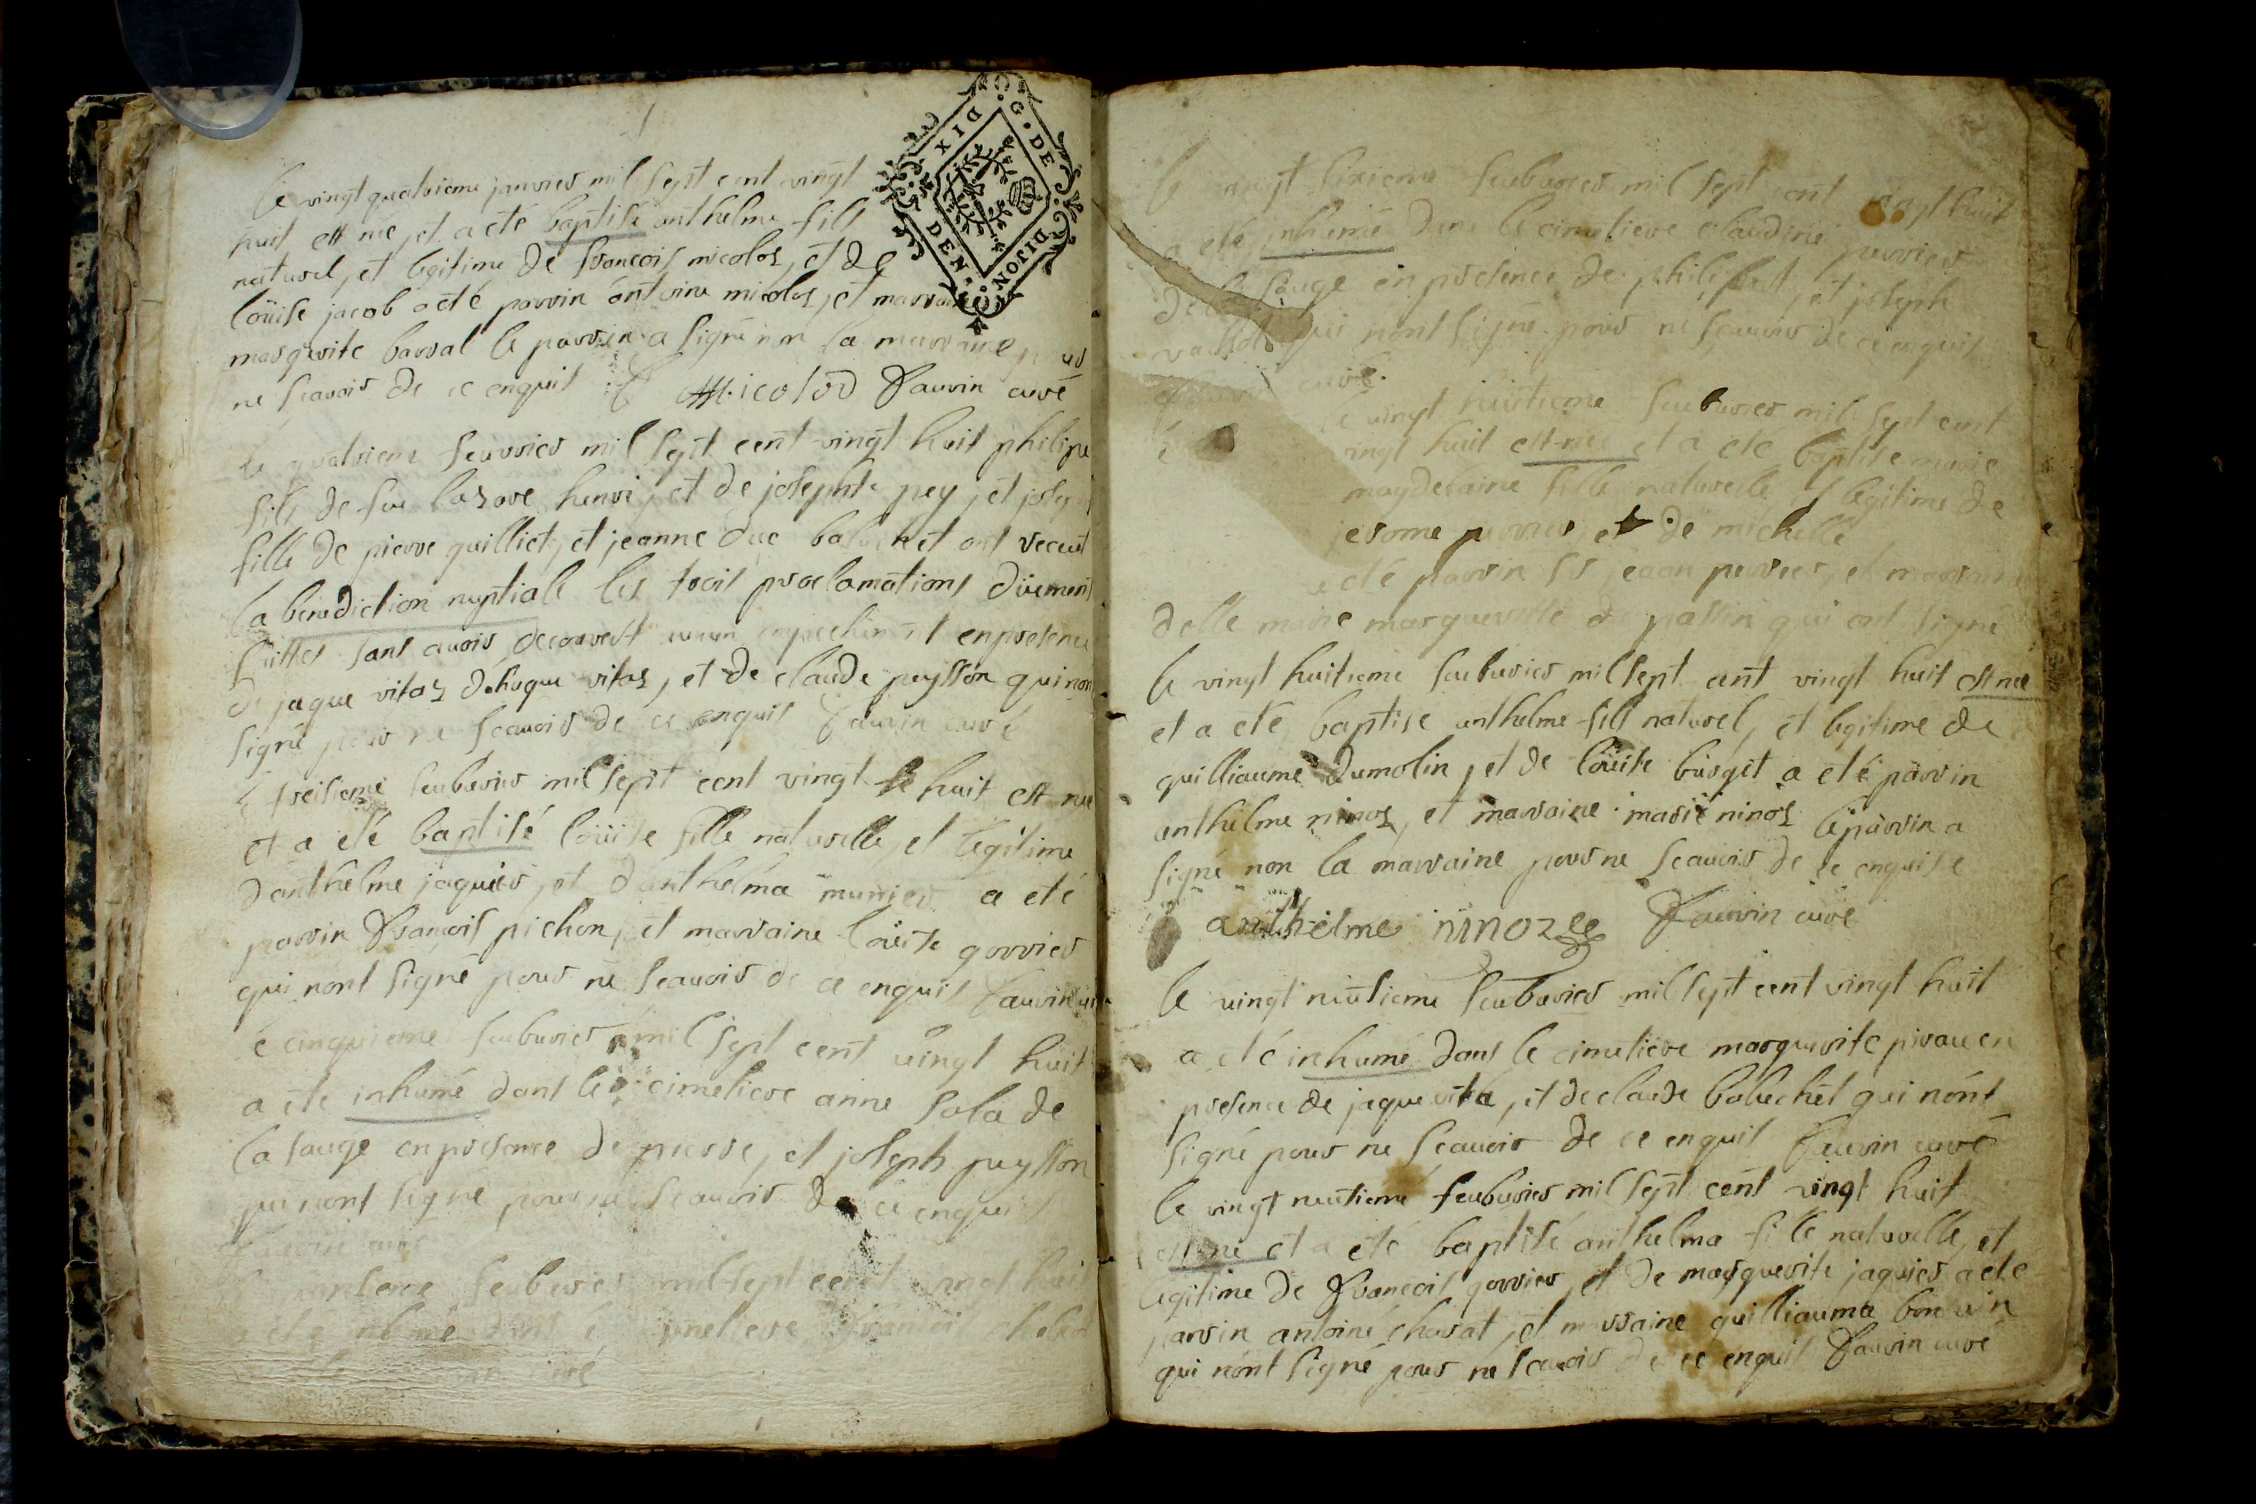 le vingt quatrieme janvier mil sept cent vingt
huit est né, et a eté baptisé anthelme fils
naturel, et legitime de francois micoloz, et de
loüise jacob a eté parrin antoine micoloz, et marraine
marguerite barral le parrin a signé non la marraine pour
ne scavoir de ce enquis Micolod Fauvin curé
G. DE DIJON
DIX DEN.
le quatrieme feuvrier mil sept cent vingt huit philipe
fils de feu lazare henri, et de josephte pey, et
fille de pierre guilliet, et jeanne duc ont receut
la benediction nuptiale les trois proclamations düement
faittes sans avoir decouvert aucun empechement en presence
de jaque vitoz d'huque vitoz, et de claude peysson qui non
signé pour ne scavoir de ce enquis Fauvin curé
le treisieme feuburier mil sept cent vingt huit est née
et a eté baptisé loüise fille naturelle, et legitime
d'anthelme jaquier, et d'anthelma munier a eté
parrin francois pichon, et marraine loüise gorrier
qui n'ont signé pour ne scavoir de ce enquis Fauvin
cinquieme feuburier mil sept cent vingt huit
a eté inhumé dans le cimetiere anne sola de
la sauge en presence de pierre, et joseph peysson
qui n'ont signé pour ne scavoir de ce enquis
Fauvin curé
feuburier mil sept cent vingt huit
a eté inhumé dans le cimetiere
curé
le vingt sixieme feuburier mil sept cent vingt huit
a eté inhumé dans le cimetiere claudine perrier
de la sauge en presence de et joseph
qui n'ont signé pour ne scavoir de ce enquis
curé
le vingt huitieme feuburier mil sept cent
vingt huit est née et a eté baptisé marie
magdelaine fille naturelle et legitime de
jerome perrier et de michelle
a eté parrin sr jean perrier, et marraine
delle marie margueritte de passin qui ont signé
le vingt huitieme feuburier mil sept cent vingt huit est né
et a eté baptisé anthelme fils naturel, et legitime de
guilliaume dumolin, et de loüise burget a eté parrin
anthelme ninoz, et marraine marie ninoz le parrin a
signé non la marraine pour ne scavoir de ce enquise
anthelme ninoz Fauvin curé
le vingt neufieme feuburier mil sept cent vingt huit
a eté inhumé dans le cimetiere marguerite pirau en
presence de jaque vita, et de claude babuchet qui n'ont
signé pour ne scavoir de ce enquis Fauvin curé
le vingt neufieme feuburier mil sept cent vingt huit
est né et a eté baptisé anthelma fille naturelle, et
legitime de francois gorrier, et de marguerite jaquier a eté
parrin antoine chavat, et marraine guilliauma bonvin
qui n'ont signé pour ne scavoir de ce enquis Fauvin curé